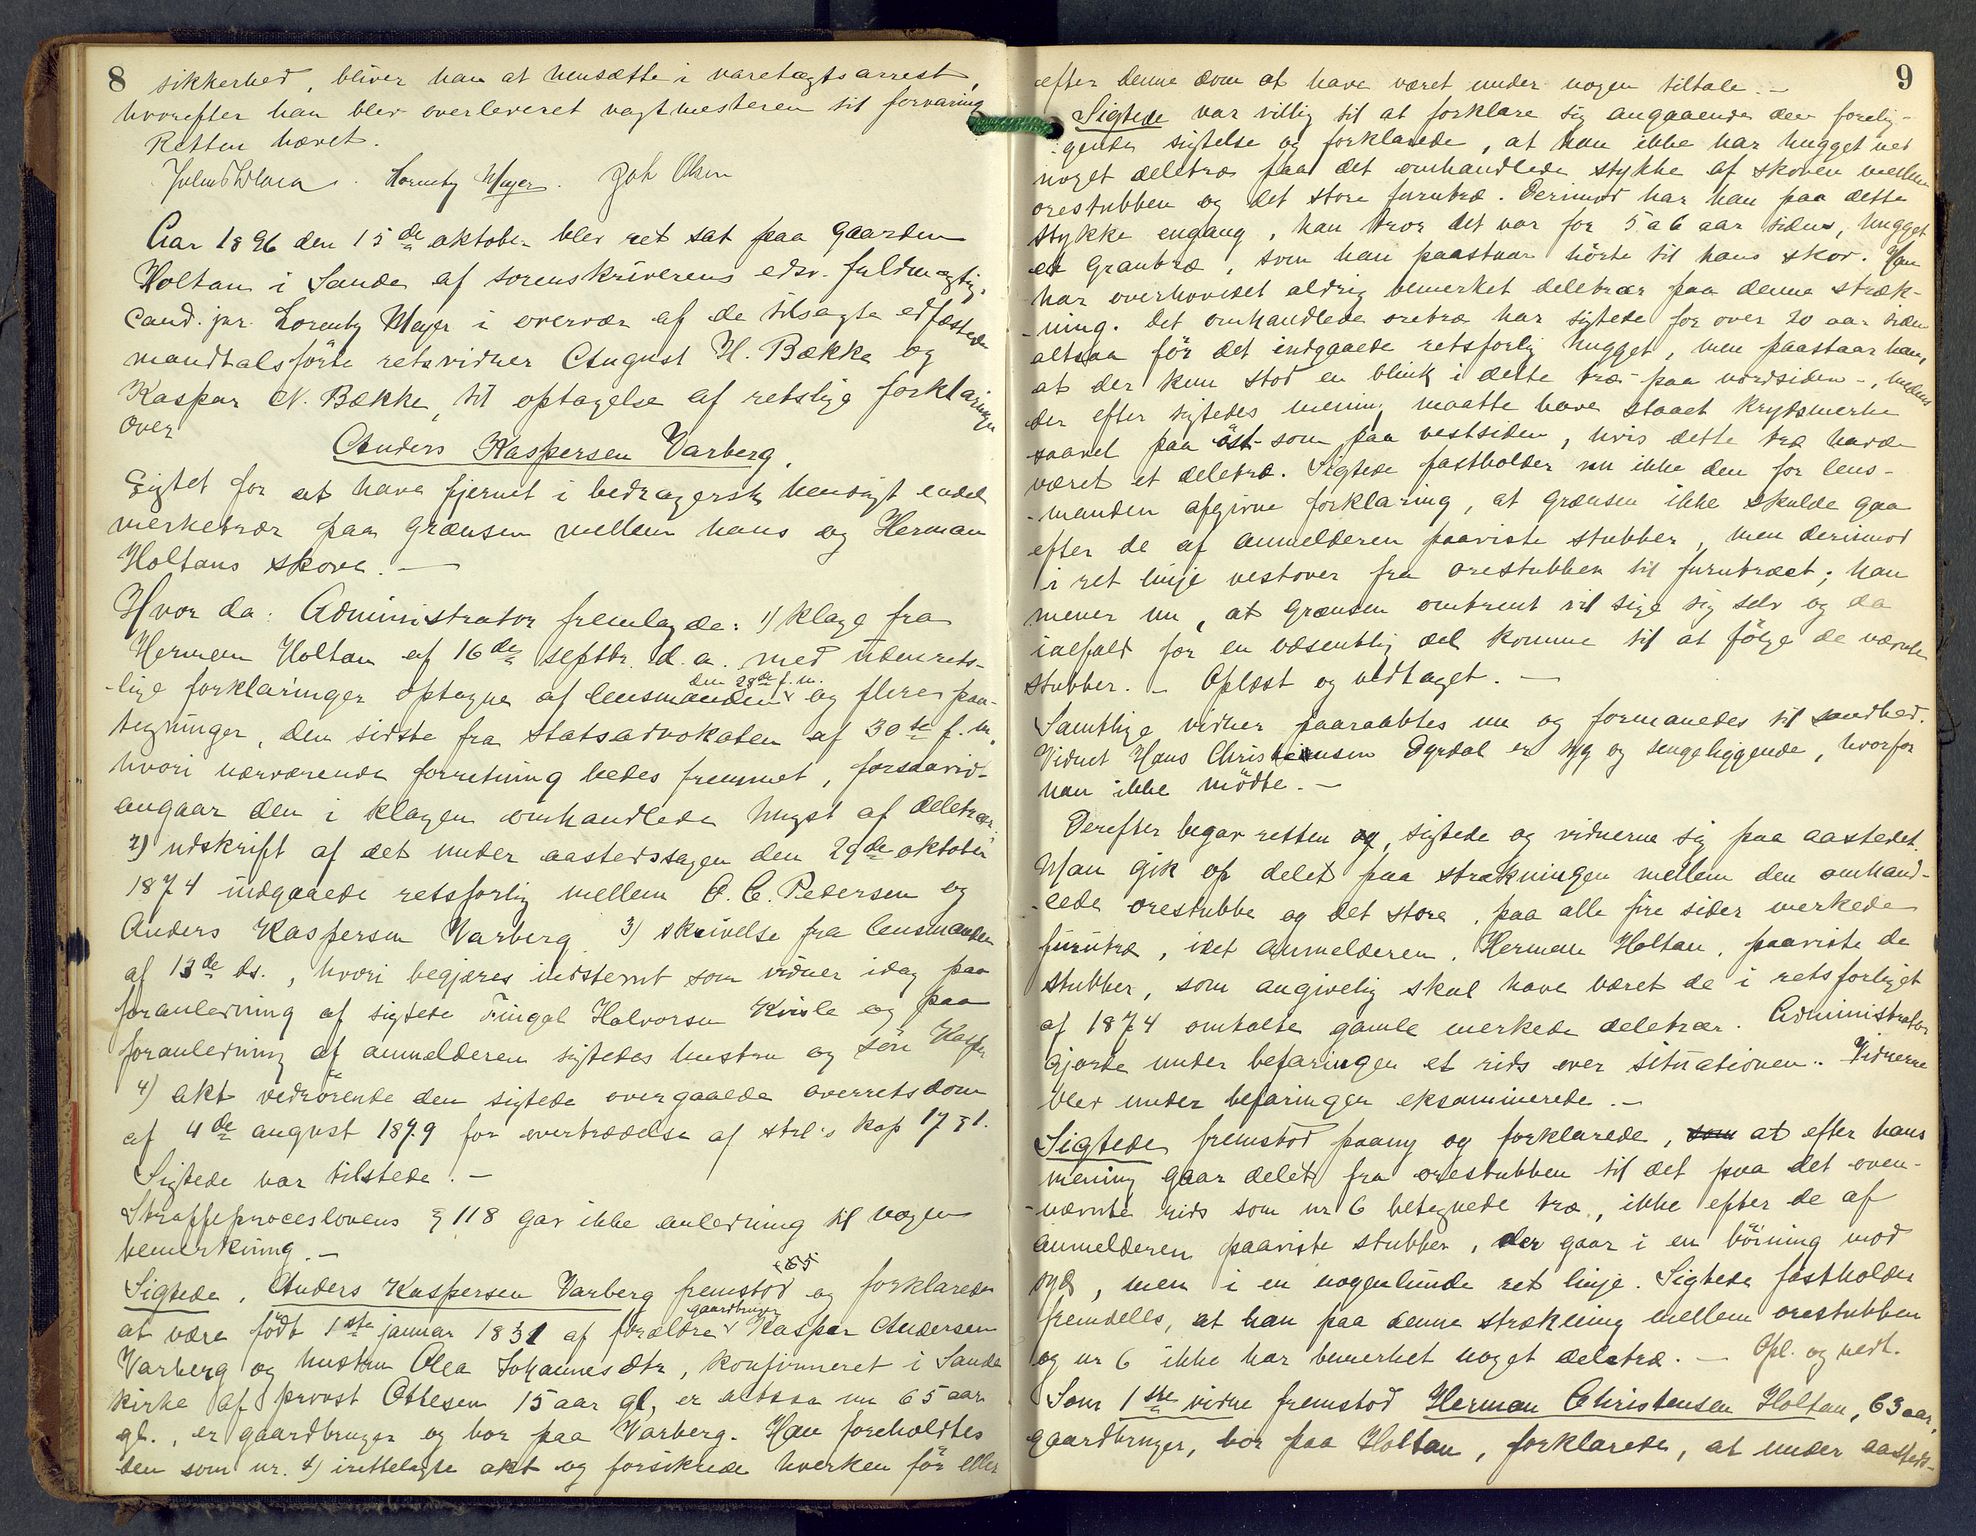 8
sikkerhed, bliver han at hensætte i varetægtsarrest,
hvorefter han blev overleveret vagtmesteren til forvaring
Retten hævet.
Horneby Mejer. Joh Olsen
Aar 1896 den 15de oktober blev ret sat paa gaarden
Holtan i Sande af sorenskriverens edsv. fuldmægtig,
cand. jur. Hornby Mejer i overvær af de tilsagte edfæstede
mandtalsförte retsvidner August H. Bække og
Kaspar N. Bække, til optagelse af retslige forklaringer
over
Anders Kaspersen Varberg,
Sigtet for at have fjernet i bedragersk hensigt endel
merketrær paa grænsen mellem hans og Herman
Holtans skove. —
Hvor da: Administrator fremlagde: 1) klage fra
Herman Holtan af 16de septbr. d. a. med udenrets-
-lige forklaringer optagne af lensmanden den 28de f. m. og flere paa-
tegninger, den sidste fra Statsadvokaten af 30te f. m,
hvori nærværende forretning bedes fremmet, forsaavid-
angaar den i klagen omhandlede hugst af deletrær.
2) udskrift af det under aastedssagen den 29de oktober
1874 indgaaede retsforlig mellem O. C. Pedersen og
Anders Kaspersen Varberg. 3) skrivelse fra lensmanden
af 13de ds., hvori begjæres indstevnt som vidner idag paa
foranledning af sigtede Fingal Halvorsen Kvisle og paa
foranledning af anmelderen sigtedes hustru og sön Kasper
4) akt vedrörende den sigtede overgaaede overretsdom
af 4de august 1879 for overtrædelse af strl's kap 17 § 1.
Sigtede var tilstede. —
Straffeproceslovens § 118 gav ikke anledning til nogen
bemerkning. —
Sigtede, Anders Kaspersen Varberg fremstod og forklarede
at være født 1ste januar 1831 af forældre gaardbruger Kaspar Andersen
Varberg og hustru Olea Johannesdtr, konfirmeret i Sande
kirke af provst Ottesen 15 aar gl, er altsaa nu 65 aar
gl., er gaardbruger og bor paa Varberg. Han foreholdtes
den som nr. 4) irettelagte akt og forsikrede hverken för eller
9
efter denne dom at have været under nogen tiltale. —
Sigtede var villig til at forklare sig angaaende den forelig-
-gende sigtelse og forklarede, at han ikke har hugget ned
noget deletræ paa det omhandlede stykke af skoven mellem
orestubben og det store furutræ. Derimod har han paa dette
stykke engang, han tror det var for 5 a 6 aar siden, hugget
et grantræ, som han paastaar hörte til hans skov. Han
har overhovedet aldrig bemerket deletrær paa denne stræk-
-ning. Det omhandlede oretræ har sigtede for over 20 aar siden
altsaa för det indgaaede retsforlig hugget, men paastaar han,
at der kun stod en blink i dette træ – paa nordsiden –, medens
der efter sigtedes mening maatte have staaet krydsmerke
saavel paa öst- som paa vestsiden, hvis dette træ havde
været et deletræ. Sigtede fastholder nu ikke den for lens-
-manden afgivne forklaring, at grænsen ikke skulde gaa
efter de af anmelderen paaviste stubber, men derimod
i ret linje vestover fra orestubben til furutræet; han
mener nu, at grænsen omtrent vil sige sig selv og da
ialfald for en væsentlig del komme til at følge de nævnte
stubber. – Oplæst og vedtaget. —
Samtlige vidner paaraabtes nu og formanedes til sandhed.
Vidnet Hans Christensen Dyrdal er syg og sengeliggende, hvorfor
han ikke mödte. —
Derefter begav retten sigtede og vidnerne sig paa aastedet.
Man gik op delet paa strækningen mellem den omhand-
-lede orestubbe og det store, paa alle fire sider merkede
furutræ, idet anmelderen, Herman Holtan, paaviste de
stubber, som angivelig skal have været de i retsforliget
af 1874 omtalte gamle merkede deletrær. Administrator
gjorde under befaringen et rids over situationen. Vidnerne
blev under befaringen eksaminerede. —
Sigtede fremstod paany og forklarede, som at efter hans
mening gaar delet fra orestubben til det paa det oven-
-nævnte rids som nr 6 betegnede træ, ikke efter de af
anmelderen paaviste stubber, der gaar i en böining mod
syd, men i en nogenlunde ret linje. Sigtede fastholder
fremdeles, at han paa denne strækning mellem orestubben
og nr 6 ikke har bemerket noget deletræ. — Opl. og vedt.
Som 1ste vidne fremstod Herman Christensen Holtan, 63 aar,
gaardbruger, bor paa Holtan, forklarede, at under aasteds-